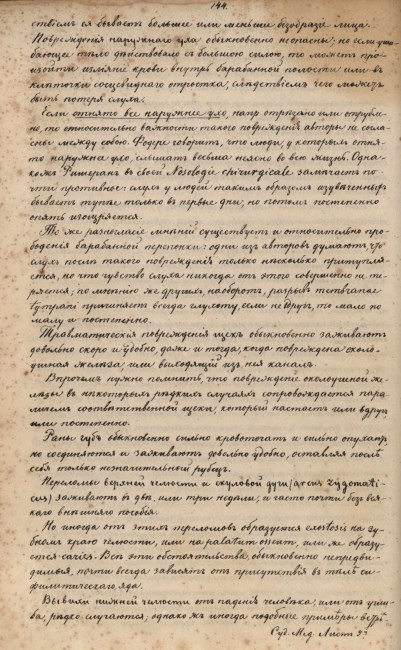 144.
ствіемъ ея бываетъ большее или меньшее безобразіе лица.
Поврежденія наружнаго уха обыкновенно неопасны; но если уши-
бающее тѣло дѣйствовало съ большою силою, то можетъ про-
изойти изліяніе крови внутрь барабанной полости или въ
клѣточки сосцевиднаго отростка, слѣдствіемъ чего можетъ
быть потеря слуха.
Если отнято все наружное ухо, напр. отрѣзано или отрубле-
но, то относительно важности такого поврежденія авторы не согла-
сны между собою. Фодере говоритъ, что люди, у которыхъ отня-
то наружное ухо, слышатъ весьма неясно во всю жизнь. Одна-
кожъ Ришеранъ въ своей Nosologie chirurgicale замѣчаетъ по-
чти противное: слухъ у людей такимъ образомъ изувѣченныхъ
бываетъ тупѣе только въ первые дни, но потомъ постепенно
опять изощряется.
То же разногласіе мнѣній существуетъ и относительно про-
боденія барабанной перепонки: одни изъ авторовъ думаютъ, чтъ
слухъ послѣ такого поврежденія только нѣсколько притупля-
ется, но что чувство слуха никогда отъ этого совершенно не те-
ряется; по мнѣнію же другихъ, наоборотъ, разрывъ membranae
tympani причиняетъ всегда глухоту, если не вдругъ, то мало по
малу и постепенно.
Травматическія поврежденія щекъ обыкновенно заживаютъ
довольно скоро и удобно, даже и тогда, когда повреждена около-
ушная железа, или выходящій изъ нея каналъ.
Впрочемъ нужно помнить, что поврежденіе околоушной же-
лезы въ нѣкоторыхъ рѣдкихъ случаяхъ сопровождается пара-
личемъ соотвѣтственной щеки, который настаетъ или вдругъ
или постепенно.
Раны губъ обыкновенно сильно кровоточатъ и сильно опухаютъ,
но соединяются и заживаютъ довольно удобно, оставляя послѣ
себя только незначительный рубецъ.
Переломы верхней челюсти и скуловой дуги (arcus zygomati-
cus) заживаютъ въ двѣ, или три недѣли, и часто почти безъ вся-
каго внѣшняго пособія.
Но иногда отъ этихъ переломовъ образуется exostosis на зу-
бномъ краю челюсти, или на palatum osseum, или же образу-
ется caries. Всѣ эти обстоятельства, обыкновенно непредви-
димыя, почти всегда зависятъ отъ присутствія въ тѣлѣ си-
филитическаго яда.
Вывихи нижней челюсти отъ паденія человѣка, или отъ уши-
ба, рѣдко случаются; однако жъ иногда подобные примѣры встрѣ-
Суд. Мед. Листъ